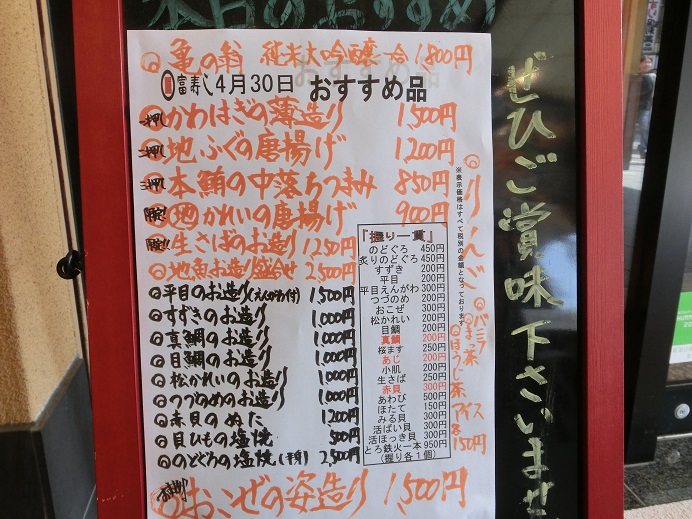 本日のおすすめ
亀の翁 純米大吟醸一合 1,800円
富寿し 4月30日 おすすめ品
一押し かわはぎの薄造り 1,500円
二押し 地ふぐの唐揚げ 1,200円
三押し 本鮪の中落ちつまみ 850円
地 かれいの唐揚げ 900円
生さばのお造り 1,250円
◎地魚お造り盛合せ 2,500円
◎平目のお造り(えんがわ付) 1,500円
◎すずきのお造り 1,000円
◎真鯛のお造り 1,000円
◎目鯛のお造り 1,000円
◎松かれいのお造り 1,000円
◎つづめのお造り 1,000円
◎赤貝のぬた 1,200円
◎貝ひもの塩焼 500円
◎のどぐろの塩焼(半身) 2,500円
おこぜの姿造り 1,500円
『握り一貫』
のどぐろ 450円
炙りのどぐろ 450円
すずき 200円
平目 200円
平目えんがわ 300円
つづのめ 200円
おこぜ 300円
松かれい 200円
目鯛 200円
真鯛 200円
桜ます 250円
あじ 200円
小肌 200円
生さば 250円
赤貝 300円
あわび 500円
ほたて 150円
みる貝 300円
活ばい貝 300円
活ほっき貝 300円
とろ鉄火一本 950円
(握り各1個)
※表示価格はすべて税別の金額となっております
◎りんご
◎バニラ
◎まっ茶
◎ほうじ茶
アイス
各150円
ぜひご賞味下さいませ